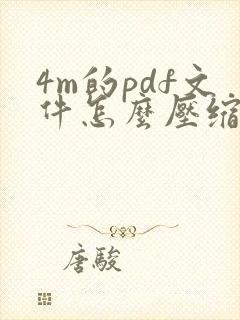 4m的pdf文
件怎麼壓縮
唐駿